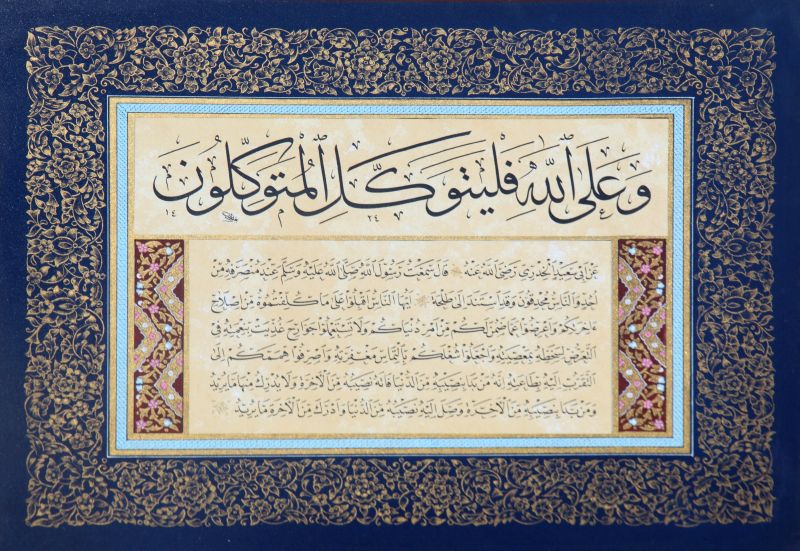 وَعَلَى ٱللَّهِ فَلْيَتَوَكَّلِ ٱلْمُتَوَكِّلُونَ
١٤ ٢٤
عن ابي سعيد الخدري رضي الله عنه قال سمعت رسول الله صلى الله عليه وسلم عند منصرفه من
احد والناس محدقون به وقد استند الى طلحة ايها الناس اقبلوا على ما كلفتموه من اصلاح
اخرتكم واعرضوا عما ضمن لكم من امر دنياكم ولا تستعملوا جوارح غذيت بنعمته في
التعرض لسخطه بمعصيته واجعلوا شغلكم بالتماس مغفرته واصرفوا هممكم الى
التقرب اليه بطاعته انه من بدا بنصيبه من الدنيا فاته نصيبه من الاخرة ولا يدرك منها ما يريد
ومن بدا بنصيبه من الاخرة وصل اليه نصيبه من الدنيا وادرك من الاخرة ما يريد